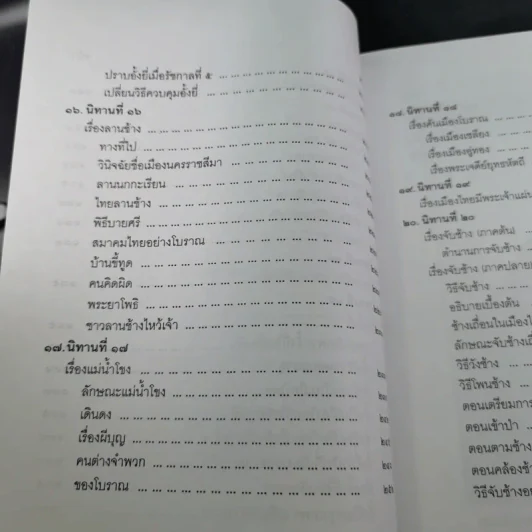 ปราบอั้งยี่เมื่อรัชกาลที่ ๕ ... ... ... ... ... ... ...
เปลี่ยนวิธีควบคุมอั้งยี่ ... ... ... ... ... ... ...
๑๖. นิทานที่ ๑๖
เรื่องลานช้าง ... ... ... ... ... ... ...
ทางที่ไป ... ... ... ... ... ... ...
วินิจฉัยชื่อเมืองนครราชสีมา ... ... ... ... ...
ลานนกกะเรียน ... ... ... ... ... ... ...
ไทยลานช้าง ... ... ... ... ... ... ...
พิธีบายศรี ... ... ... ... ... ... ...
สมาคมไทยอย่างโบราณ ... ... ... ... ... ...
บ้านขี้ทูด ... ... ... ... ... ... ...
คนคิดผิด ... ... ... ... ... ... ...
พระยาโพธิ ... ... ... ... ... ... ...
ชาวลานช้างไหว้เจ้า ... ... ... ... ... ...
๑๗. นิทานที่ ๑๗
เรื่องแม่น้ำโขง ... ... ... ... ... ... ...
ลักษณะแม่น้ำโขง ... ... ... ... ... ...
เดินดง ... ... ... ... ... ... ...
เรื่องผีบุญ ... ... ... ... ... ... ...
คนต่างจำพวก ... ... ... ... ... ...
ของโบราณ ... ... ... ... ... ...
๑๘. นิทานที่ ๑๘
เรื่องค้นเมืองโบราณ ... ...
เรื่องเมืองเชลียง ... ...
เรื่องเมืองอู่ทอง ... ...
เรื่องพระเจดีย์ยุทธหัตถี
๑๙. นิทานที่ ๑๙
เรื่องเมืองไทยมีพระเจ้าแผ่น
๒๐. นิทานที่ ๒๐
เรื่องจับช้าง (ภาคต้น) ...
ตำนานการจับช้าง ...
เรื่องจับช้าง (ภาคปลาย)
วิธีจับช้าง ... ...
อธิบายเบื้องต้น ...
ช้างเถื่อนในเมืองไ
ลักษณะจับช้างเถื่
วิธีวังช้าง ... ...
วิธีโพนช้าง ...
ตอนเตรียมการ
ตอนเข้าป่า ...
ตอนตามช้าง
ตอนคล้องช้า
วิธีจับช้างอย่